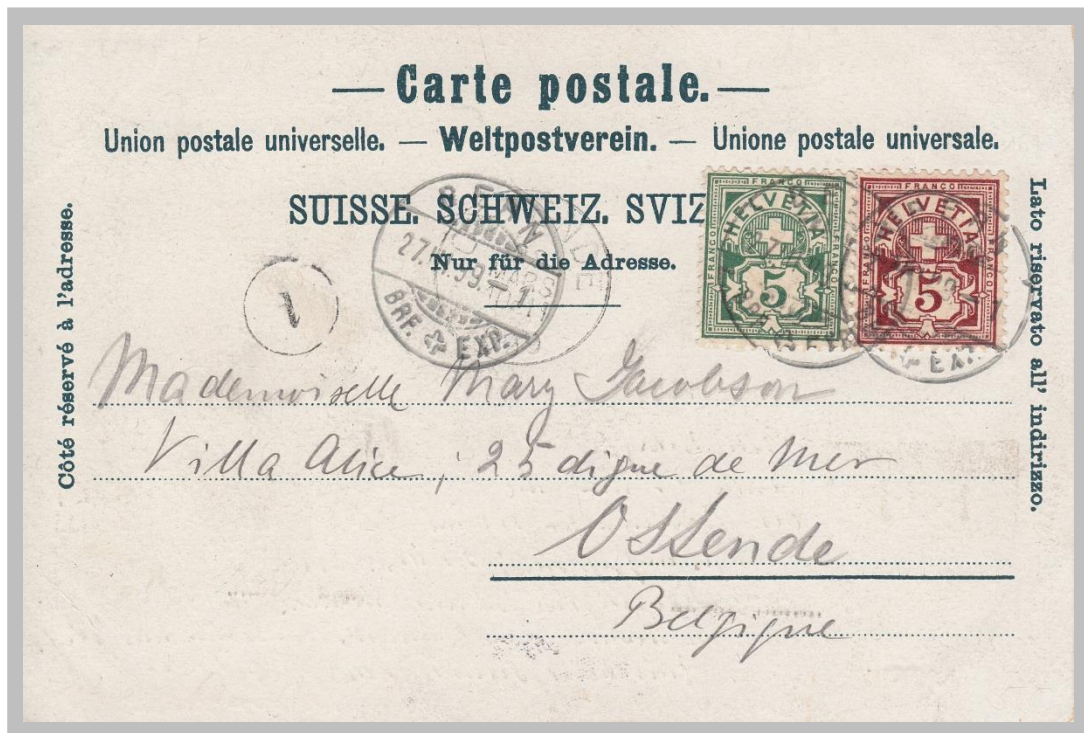 Carte postale.
Union postale universelle. — Weltpostverein. — Unione postale universale.
SUISSE. SCHWEIZ. SVIZ
Nur für die Adresse.
Côté réservé à l'adresse.
Lato riservato all' indirizzo.
FRANCO
HELVETIA
FRANCO
FRANCO
5
FRANCO
HELVETIA
FRANCO
5
BERN
27.
99.
BRF. EXP.
EXP.
1
Mademoiselle Mary Jacobson
Villa Alice, 25 digue de Mer
Ostende
Belgique